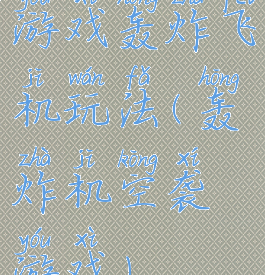 yóu xì hōng zhà fēi
游戏轰炸飞
jī wán fǎ hōng
机玩法(轰
zhà jī kōng xí
炸机空袭
yóu xì
游戏)